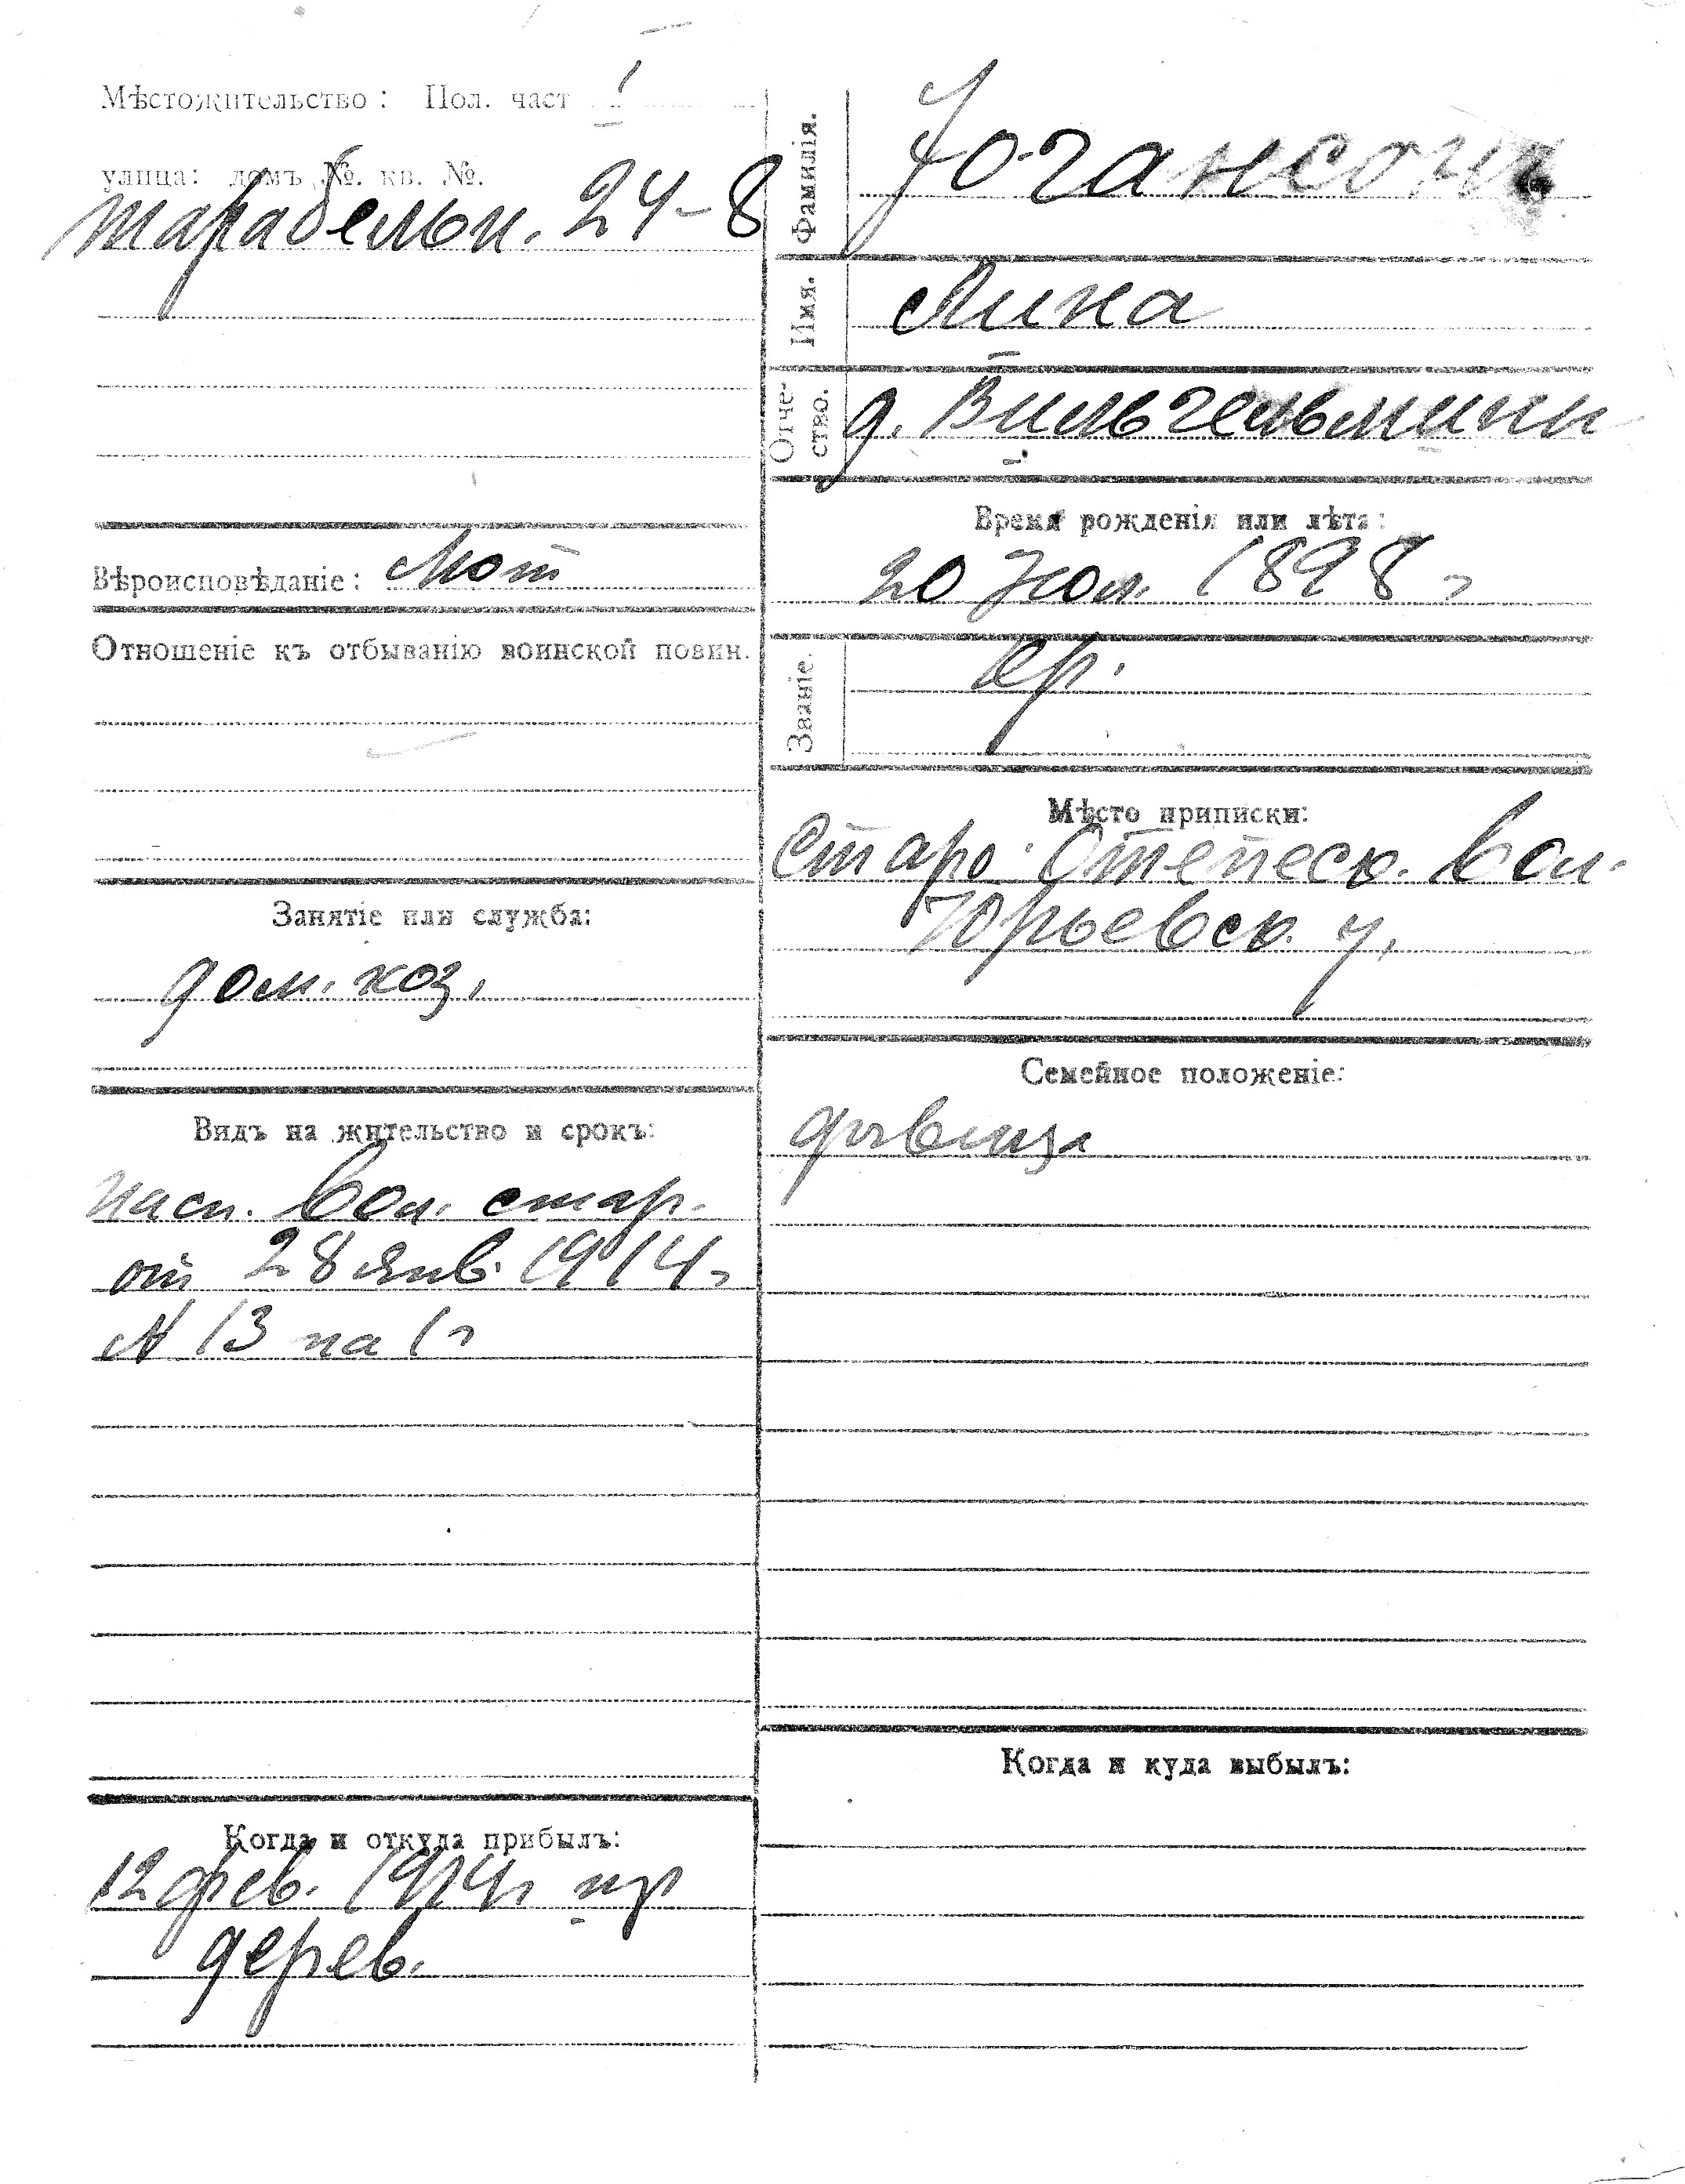 Мѣстожительство: Пол. част I
улица: домъ №. кв. №.
24-8
Вѣроисповѣданіе: Лют
Отношеніе къ отбыванію воинской повин.
Занятіе или служба:
дом. хоз.
Видъ на жительство и срокъ:
пасп. вол. стар.
от 28 янв. 1914 г
N 13 на 1 г
Когда и откуда прибылъ:
12 фев. 1914 г из
дерев.
Фамилія. Іогансонъ
Имя. Лина
Отчество. д. Вильгельмини
Время рожденія или лѣта:
20 Іюл. 1898 г
Званіе. кр.
Мѣсто приписки:
Старо-Отепеск. вол.
Юрьевск. у.
Семейное положеніе:
дѣвица
Когда и куда выбылъ: